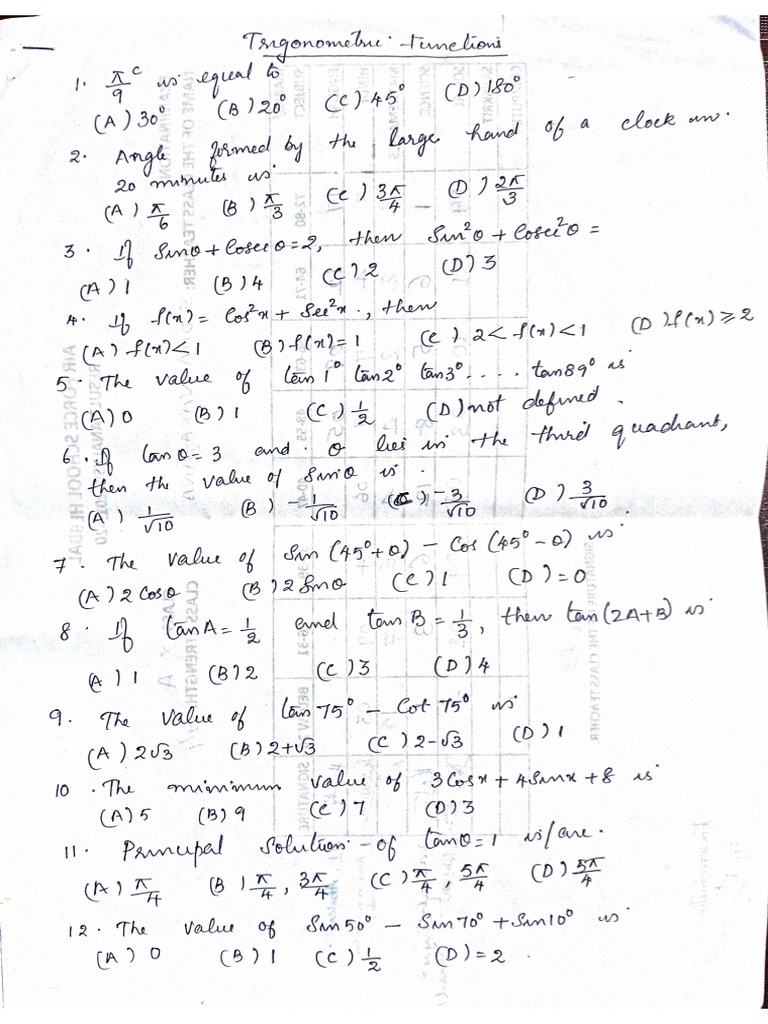 Trigonometric Functions
1. π/9 ᶜ is equal to
(A) 30° (B) 20° (C) 45° (D) 180°
2. Angle formed by the large hand of a clock in
20 minutes is
(A) π/6 (B) π/3 (C) 3π/4 (D) 2π/3
3. If Sinθ + Cosecθ = 2, then Sin²θ + Cosec²θ =
(A) 1 (B) 4 (C) 2 (D) 3
4. If f(x) = Cos²x + Sec²x, then
(A) f(x) < 1 (B) f(x) = 1 (C) 2 < f(x) < 1 (D) f(x) ⩾ 2
5. The value of tan1° tan2° tan3° .... tan89° is
(A) 0 (B) 1 (C) 1/2 (D) not defined.
6. If tanθ = 3 and θ lies in the third quadrant,
then the value of Sinθ is
(A) 1/√10 (B) -1/√10 (C) -3/√10 (D) 3/√10
7. The value of Sin (45°+θ) - Cos (45°-θ) is
(A) 2 Cosθ (B) 2 Sinθ (C) 1 (D) = 0
8. If tanA = 1/2 and tanB = 1/3, then tan(2A+B) is
(A) 1 (B) 2 (C) 3 (D) 4
9. The value of tan75° - Cot75° is
(A) 2√3 (B) 2+√3 (C) 2-√3 (D) 1
10. The minimum value of 3Cosx + 4Sinx + 8 is
(A) 5 (B) 9 (C) 7 (D) 3
11. Principal Solution of tanθ = 1 is/are.
(A) π/4 (B) π/4, 3π/4 (C) π/4, 5π/4 (D) 5π/4
12. The value of Sin50° - Sin70° + Sin10° is
(A) 0 (B) 1 (C) 1/2 (D) = 2.